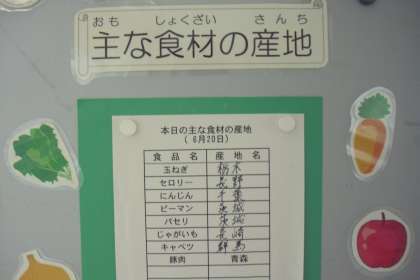 おも しょくざい さんち
主な食材の産地
本日の主な食材の産地
( 6月20日)
食品名 産地名
玉ねぎ 栃木
セロリー 長野
にんじん 千葉
ピーマン 茨城
パセリ 茨城
じゃがいも 長崎
キャベツ 群馬
豚肉 青森